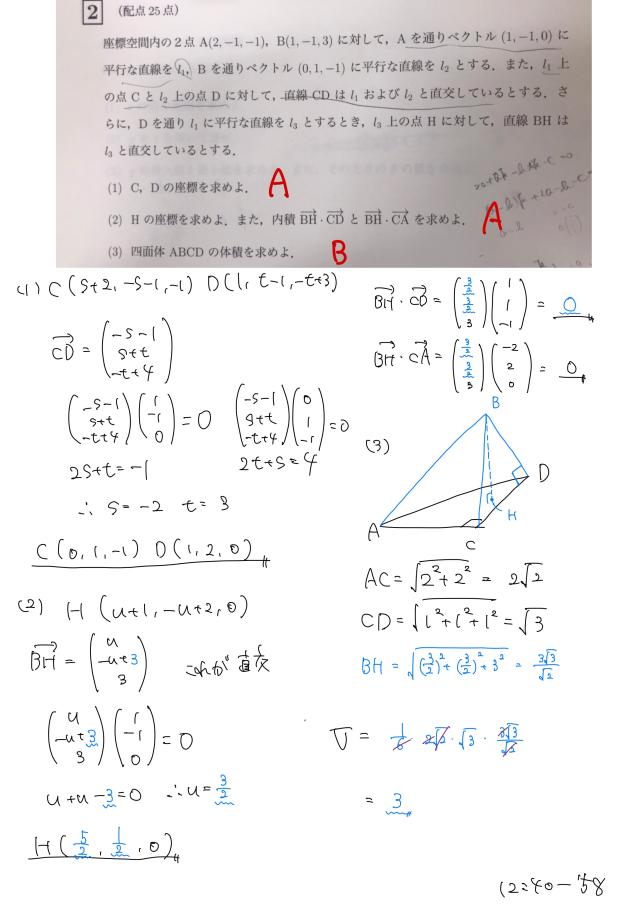 2 (配点 25 点)
座標空間内の2点 A(2, −1, −1), B(1, −1, 3) に対して, A を通りベクトル (1, −1, 0) に
平行な直線を l₁, B を通りベクトル (0, 1, −1) に平行な直線を l₂ とする. また, l₁ 上
の点 C と l₂ 上の点 D に対して, 直線 CD は l₁ および l₂ と直交しているとする. さ
らに, D を通り l₁ に平行な直線を l₃ とするとき, l₃ 上の点 H に対して, 直線 BH は
l₃ と直交しているとする.
(1) C, D の座標を求めよ. A
(2) H の座標を求めよ. また, 内積 BH→・CD→ と BH→・CA→ を求めよ. A
(3) 四面体 ABCD の体積を求めよ. B
(1) C(s+2, −s−1, −1) D(1, t−1, −t+3)
CD→ = (−s−1, s+t, −t+4)
(−s−1, s+t, −t+4)(1, −1, 0) = 0 (−s−1, s+t, −t+4)(0, 1, −1) = 0
2s+t = −1 2t+s = 4
∴ s = −2 t = 3
C(0, 1, −1) D(1, 2, 0)
(2) H (u+1, −u+2, 0)
BH→ = (u, −u+3, 3) これが直交
(u, −u+3, 3)(1, −1, 0) = 0
u+u−3=0 ∴u = 3/2
H(5/2, 1/2, 0)
BH→・CD→ = (3/2, 3/2, 3)(1, 1, −1) = 0
BH→・CA→ = (3/2, 3/2, 3)(−2, 2, 0) = 0
(3)
B
D
H
A
C
AC = √(2²+2²) = 2√2
CD = √(1²+1²+1²) = √3
BH = √((3/2)²+(3/2)²+3²) = 3√3/√2
V = 1/6 ・ 2√2 ・ √3 ・ 3√3/√2
= 3
12:40 − 58